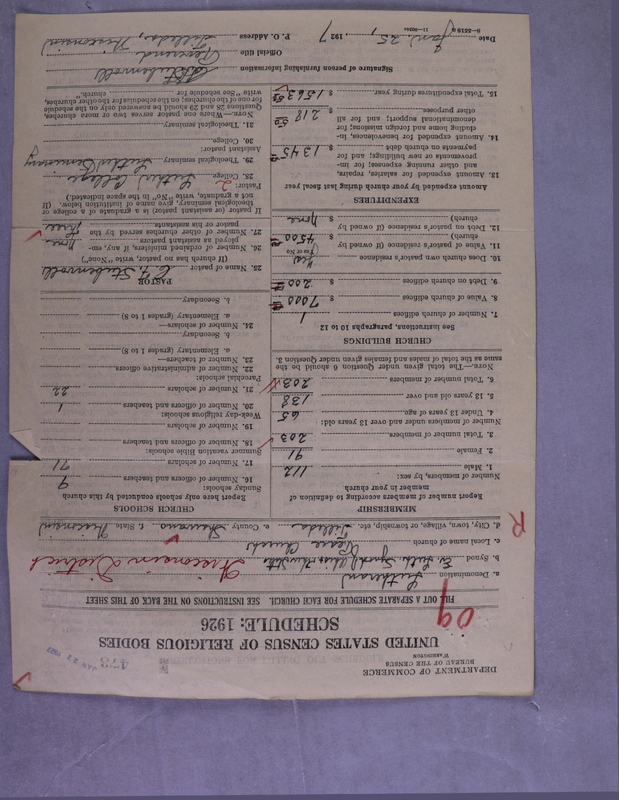 DEPARTMENT OF COMMERCE
BUREAU OF THE CENSUS
WASHINGTON
473
JAN 27 1927
UNITED STATES CENSUS OF RELIGIOUS BODIES
SCHEDULE: 1926
09
FILL OUT A SEPARATE SCHEDULE FOR EACH CHURCH. SEE INSTRUCTIONS ON THE BACK OF THIS SHEET
a. Denomination Lutheran
b. Synod Ev. Luth. Synod
Wisconsin District
c. Local name of church Peace Church
d. City, town, village, or township, etc. Tilleda e. County Shawano f. State Wisconsin
R
MEMBERSHIP
Report number of members according to definition of
member in your church
Number of members, by sex:
1. Male 112
2. Female 91
3. Total number of members 203
Number of members under and over 13 years old:
4. Under 13 years of age 65
5. 13 years old and over 138
6. Total number of members 203
NOTE.—The total given under Question 6 should be the
same as the total of males and females given under Question 3.
CHURCH BUILDINGS
See instructions, paragraphs 10 to 12
7. Number of church edifices 1
8. Value of church edifices $ 7000
9. Debt on church edifices $ 200
10. Does church own pastor's residence Yes
(Yes or No)
11. Value of pastor's residence (if owned by
church) $ 4500
12. Debt on pastor's residence (if owned by
church) $ None
EXPENDITURES
Amount expended by your church during last fiscal year
13. Amount expended for salaries, repairs,
and other running expenses; for im-
provements or new buildings; and for
payments on church debt $ 1345
14. Amount expended for benevolences, in-
cluding home and foreign missions; for
denominational support; and for all
other purposes $ 218
15. Total expenditures during year $ 1563
CHURCH SCHOOLS
Report here only schools conducted by this church
Sunday schools:
16. Number of officers and teachers 9
17. Number of scholars 71
Summer vacation Bible schools:
18. Number of officers and teachers
19. Number of scholars
Week-day religious schools:
20. Number of officers and teachers 1
21. Number of scholars 22
Parochial schools:
22. Number of administrative officers
23. Number of teachers—
a. Elementary (grades 1 to 8)
b. Secondary
24. Number of scholars—
a. Elementary (grades 1 to 8)
b. Secondary
PASTOR
25. Name of pastor C. F. Stubenvoll
(If church has no pastor, write "None")
26. Number of ordained ministers, if any, em-
ployed as assistant pastors None
27. Number of other churches served by the
pastor or his assistants Three
If pastor (or assistant pastor) is a graduate of a college or
theological seminary, give name of institution below. (If
not a graduate, write "No" in the space indicated.)
Pastor: 2
28. College Luther College
29. Theological seminary Luther Seminary
Assistant pastor:
30. College
31. Theological seminary
NOTE.—Where one pastor serves two or more churches,
Questions 28 and 29 should be answered only on the schedule
for one of the churches; on the schedules for the other churches,
write "See schedule for church."
Signature of person furnishing information C. F. Stubenvoll
Official title Reverend
P. O. Address Tilleda, Wisconsin
Date Jan. 25, 1927
8—5519a